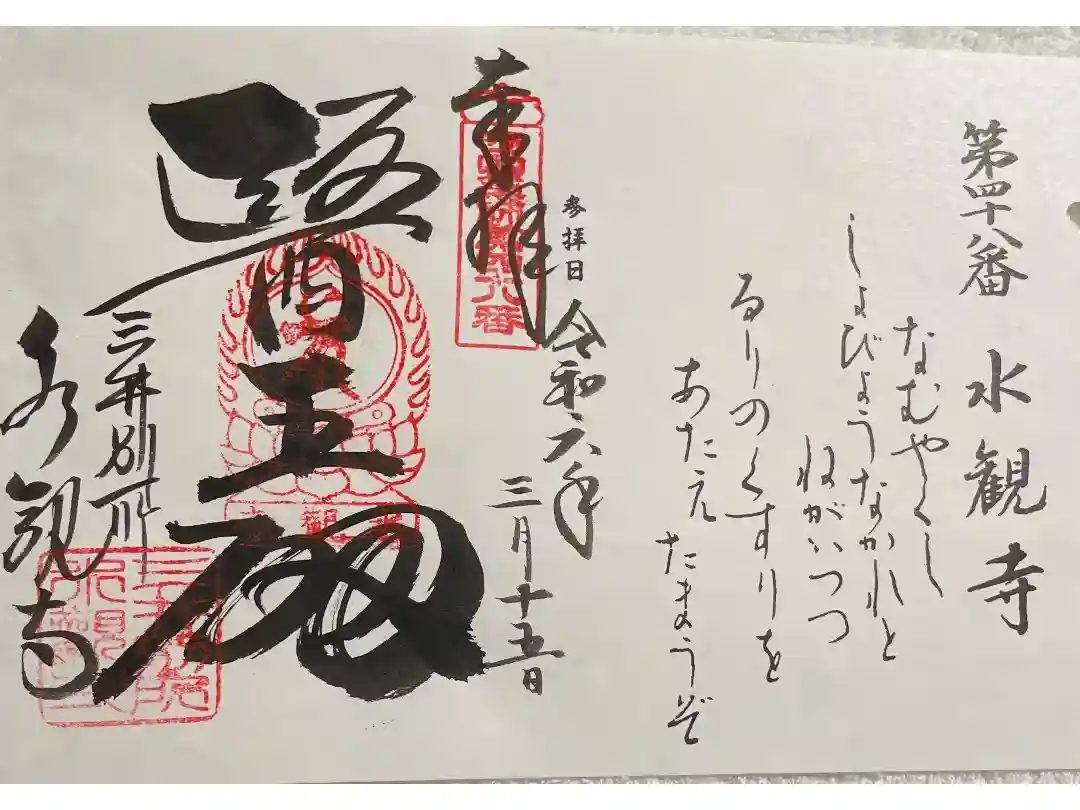 第四十八番 水観寺
なむやくし
しよびようなかれと
ねがいつつ
るりのくすりを
あたえ たまうぞ
奉拝
参拝日
令和六年
三月十五日
醫王殿
三井別所
水観寺